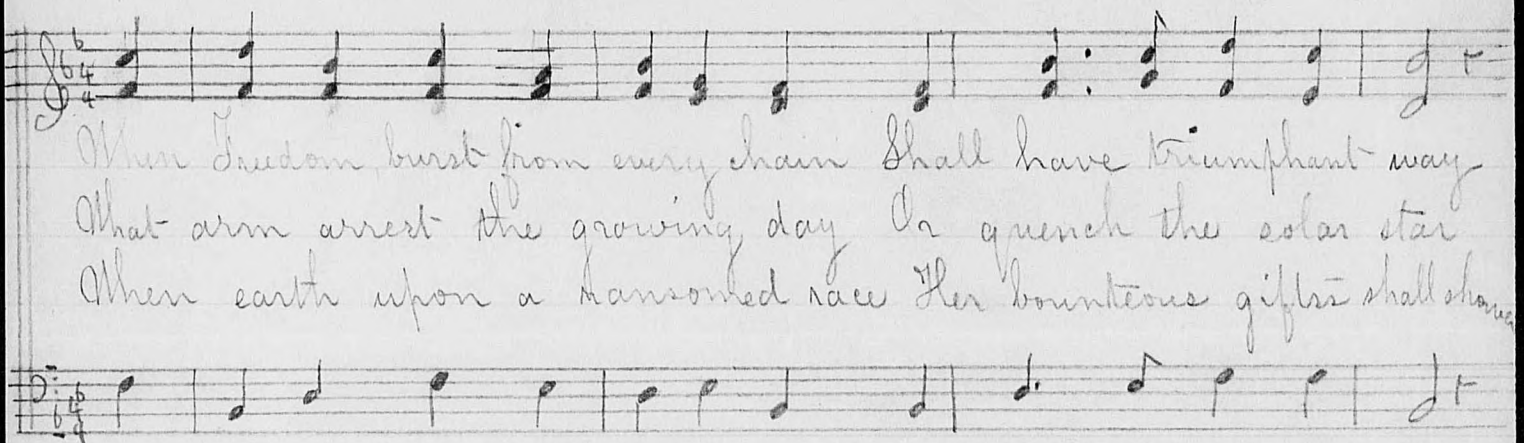 When Freedom, burst from every chain Shall have triumphant way
What arm arrest the growing day Or quench the solar star
When earth upon a ransomed race Her bounteous gifts shall shower